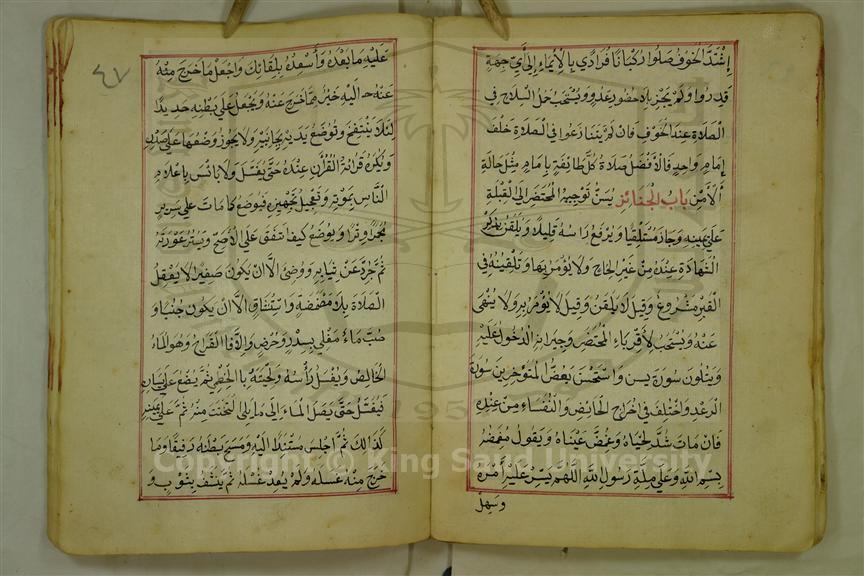 إشتدّ الخوف صلوا ركبانا فرادي بالإيماء إلى أيّ جهة
قدروا ولم يجز بلا حضور عدو ويستحب حمل السلاح في
الصلاة عند الخوف فان لم يتنازعوا في الصلاة خلف
إمام واحد فالأفضل صلاة كل طائفة بإمام مثل حالة
الأمن باب الجنائز يسنّ توجيه المحتضر الى القبلة
على يمينه وجاز مستلقيا ويرفع راسه قليلا ويلقن بذكر
الشهادة عنده من غير الحاح ولا يؤمر بها وتلقينه في
القبر مشروع وقيل لا يلقن وقيل لا يؤمر به ولا ينهى
عنه ويستحب لأقرباء المحتضر وجيرانه الدخول عليه
ويتلون سورة يس واستحسن بعض المتوخرين سورة
الرعد واختلف في اخراج الحايض والنفساء من عنده
فان مات شدّ لحياه وغمض عيناه ويقول مغمضه
بسم الله وعلى ملة رسول الله اللهم يسر عليه أمره
وسهل
٤٧
عليه ما بعده وأسعده بلقائك واجعل ما خرج منه
عنه اليه خير مما خرج عنه ويجعل على بطنه حديدا
لئلا ينتفخ وتوضع يديه بجانبيه ولا يجوز وضعها على صدره
وتكره قرائة القرأن عنده حتى يغسل ولا بائس بإعلام
الناس بموته وتعجيل تجهيزه فيوضع كما مات على سرير
مجمر وترا ويوضع كيف اتفق على الأصح ويستر عورته
ثم جرد عن ثيابه ووضئ الا ان يكون صغيرا لا يعقل
الصلاة بلا مضمضة واستنشاق الا ان يكون جنبا و
صب ماء مغلي بسدر وحرض والا فالقراح وهو الماء
الخالص ويغسل رأسه ولحيته بالخطمي ثم يضع على يساره
فيغسل حتى يصل الماء الى ما يلي التخت منه ثم على يمينه
كذالك ثم أجلس مستندا اليه ومسح بطنه رفيقا وما
خرج منه غسله ولم يعد غسله ثم ينشف بثوب و
Copyright © King Saud University
195